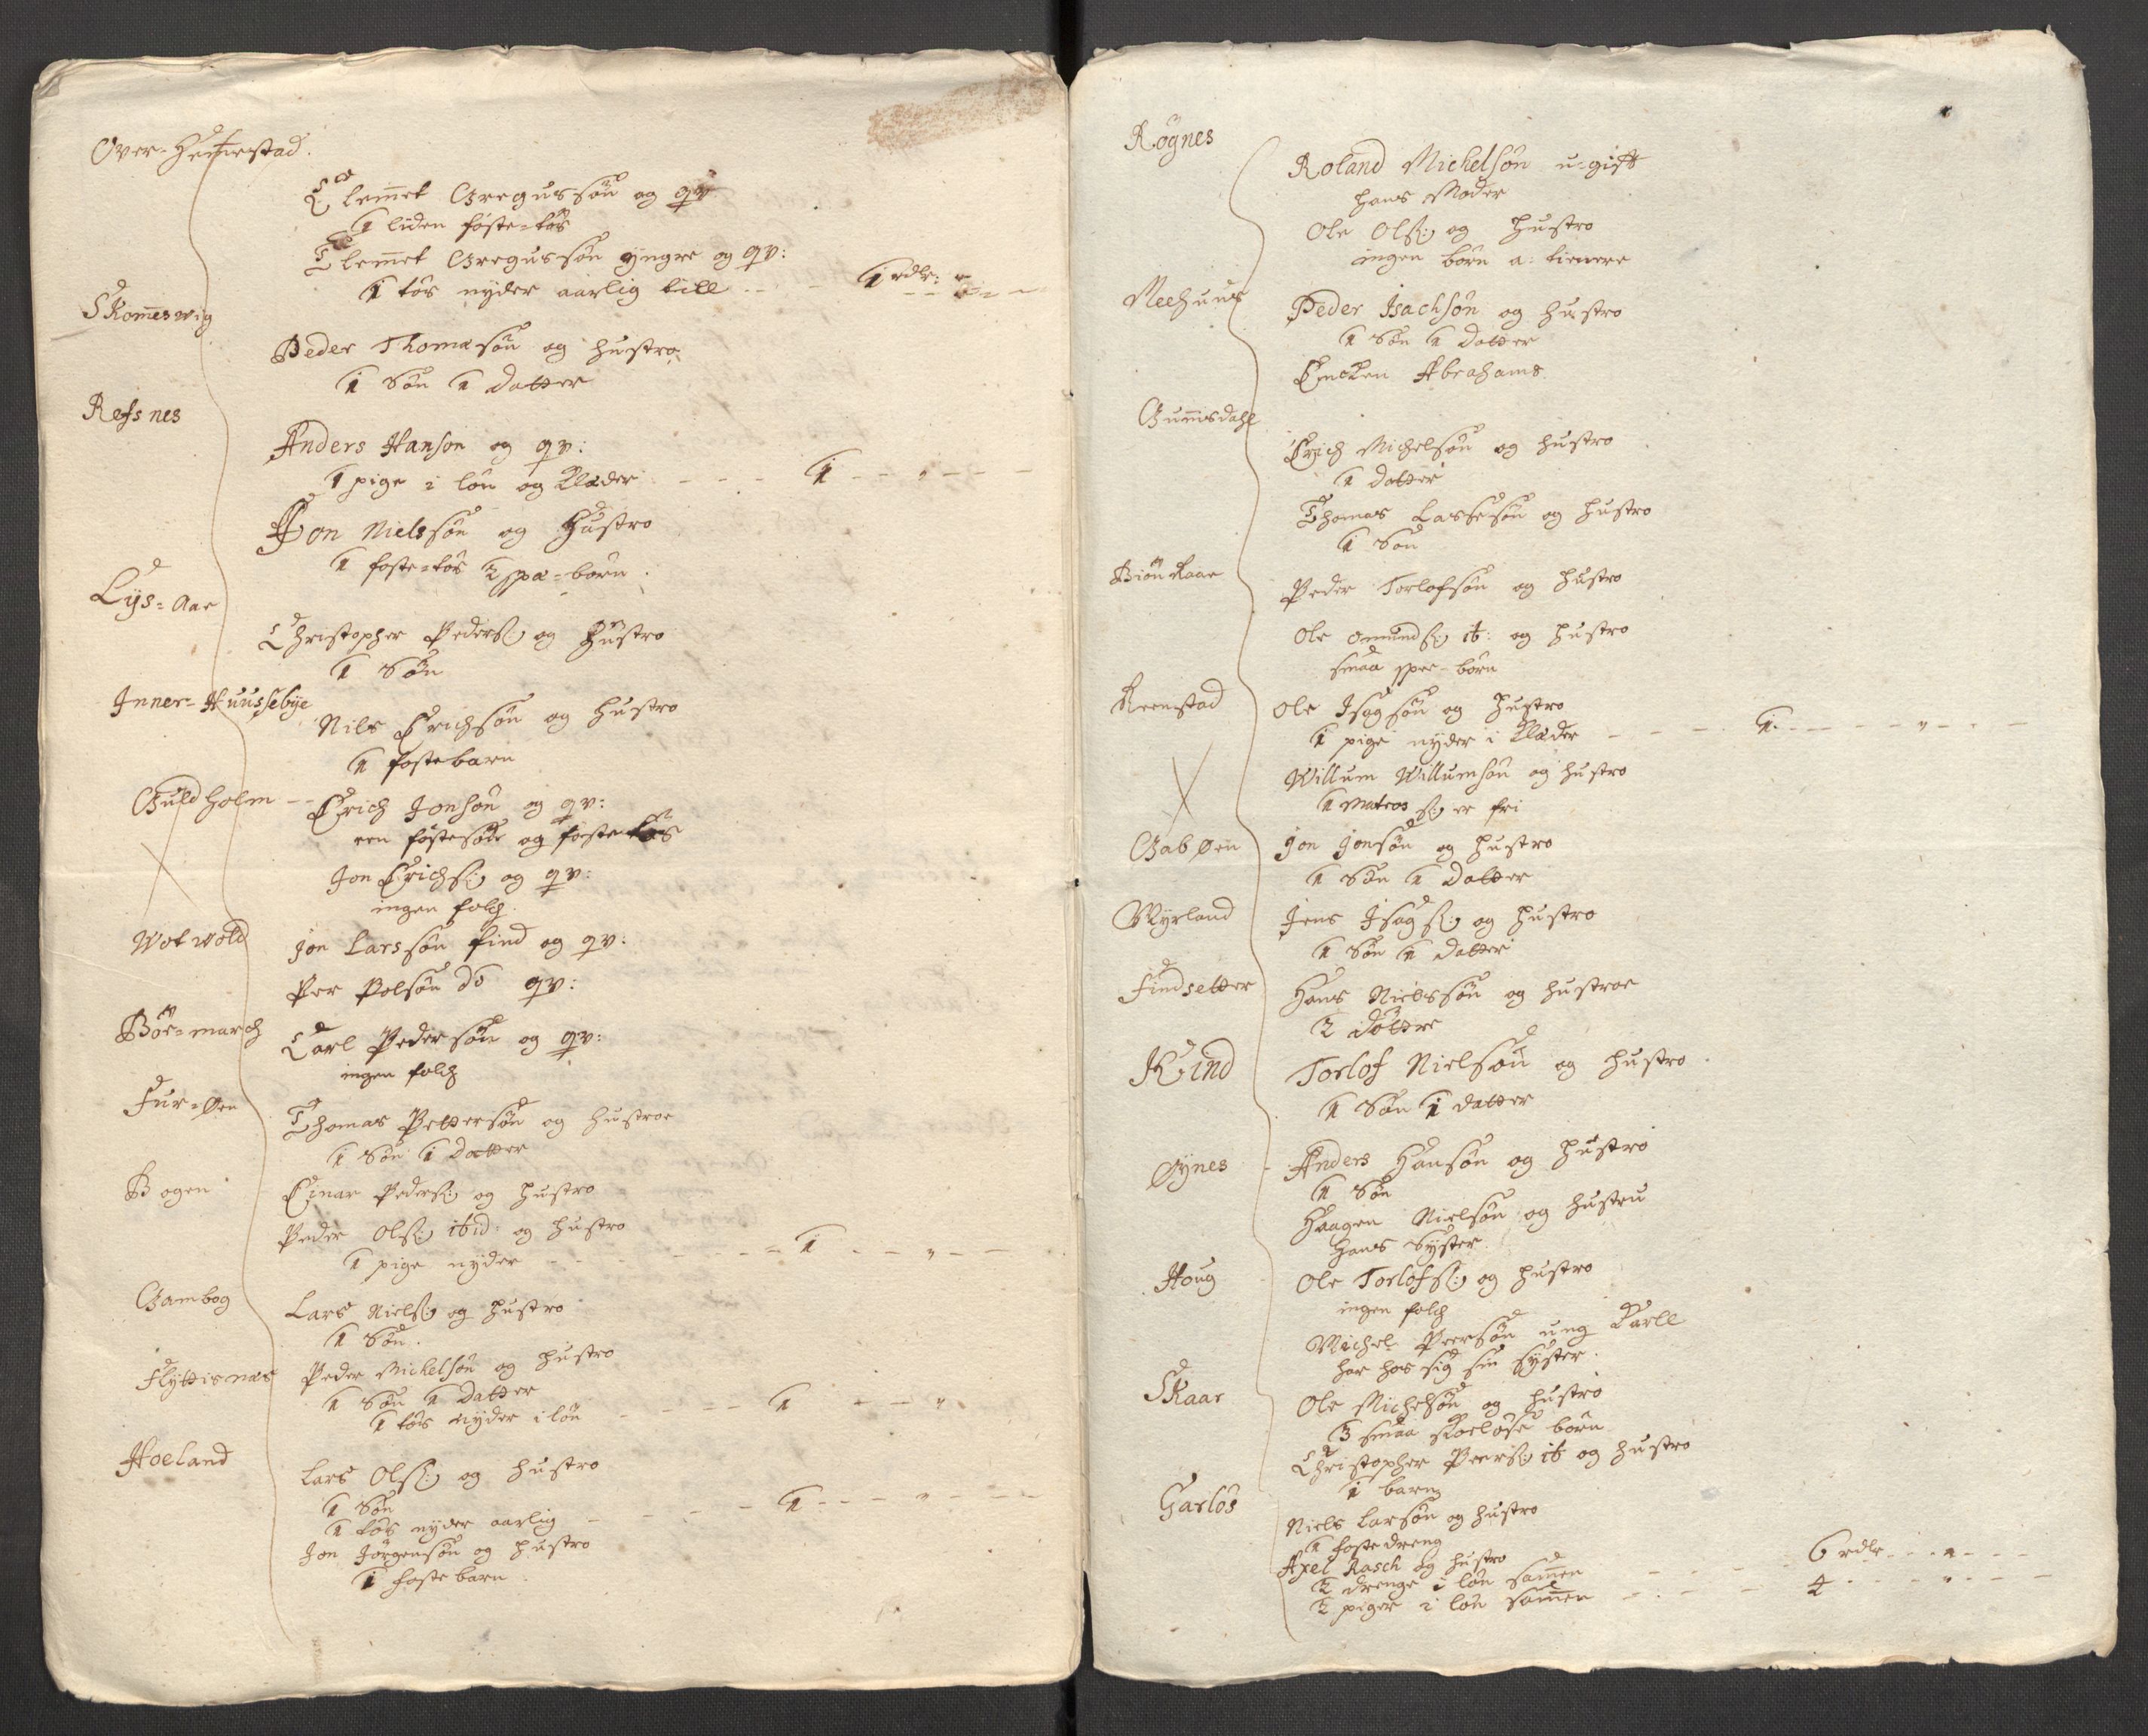 Over-Hemestad.
Clemet Gregussøn og qv
1 liden foster-tøs
Clemet Gregussøn yngre og qv:
1 tøs nyder aarlig till - - - 1 rdlr: - - -
Skomeswig
Peder Thomæsøn og hustro
1 Søn 1 Datter
Refsnes
Anders Hanson og qv:
1 pige i løn og Klæder - - - 1 - - " - - -
Jon Nielssøn og Hustro
1 foste-tøs 2 spæ-børn.
Lijs-Aae
Christopher Peders: og Hustro
1 Søn
Inner-Huussebye
Nils Erichsøn og Hustro
1 fostebarn
Guldholm - -
Erich Jonsøn og qv:
een fostersøn og foster tøs
Jon Erichs: og qv:
ingen folch.
Wotwold
Jon Larssøn find og qv:
Per Polsøn do qv:
Böe-march
Carl Pedersøn og qv:
ingen folch
Fur-Øen
Thomas Pettersøn og hustroe
1 Søn 1 Datter
Bogen
Einar Peders: og Hustro
Peder Ols: ibid: og Hustro
1 pige nyder - - - 1 - - " - -
Gambog
Lars Niels: og Hustro
1 Søn.
Flyttisnæs
Peder Michelsøn og Hustro
1 Søn 1 Datter
1 tøs nyder i løn - - - 1 - - "
Hoeland
Lars Ols: og Hustro
1 Søn
1 tøs nyder aarlig - - - 1 - - - " - - -
Jon Jörgensøn og Hustro
1 foste barn.
Røgnes
Roland Michelsøn u-gift
hans Moder
Ole Ols: og Hustro
ingen børn a: tienere
Meehuus
Peder Isachsøn og Hustro
1 Søn 1 Datter
Encken Abrahams
Gunisdahl
Erich Michelsøn og Hustro
1 Datter
Thomas Lassesøn og Hustro
1 Søn
Biønkaae
Peder Torlofsøn og Hustro
Ole Omunds: ib: og Hustro
smaa spee-børn
Reenstad
Ole Isagsøn og Hustro
1 pige nyder i Klæder - - - 1. - - - " - - -
Willum Willumsøn og hustro
1 Matros s: er fri
Gabøen
Jon Jonsøn og Hustro
1 Søn 1 Datter
Myrland
Jens Isags: og Hustro
1 Søn 1 Datter
Findsetter
Hans Nielssøn og Hustroe
2 Døttre
Kind
Torlof Nielsøn og Hustro.
1 Søn 1 Datter
Øynes
Anders Hansøn og Hustro
1 Søn
Haagen Nielsøn og Hustru
Hans Syster.
Houg
Ole Torlofs: og Hustro
ingen folch
Michel Peersøn ung Karll
har hos sig sin syster.
Skaar
Ole Michelsøn og Hustro
3 smaa skoeløse børn
Christopher Peers: ib og hustro
1 barn
Garløs
Niels Larsøn og Hustro
1 fostedreng
Axel Rasch og Hustro
2 drenge i løn samen - - - 6 rdlr - - " - - -
2 piger i løn samen - - - 4 - - " - - -